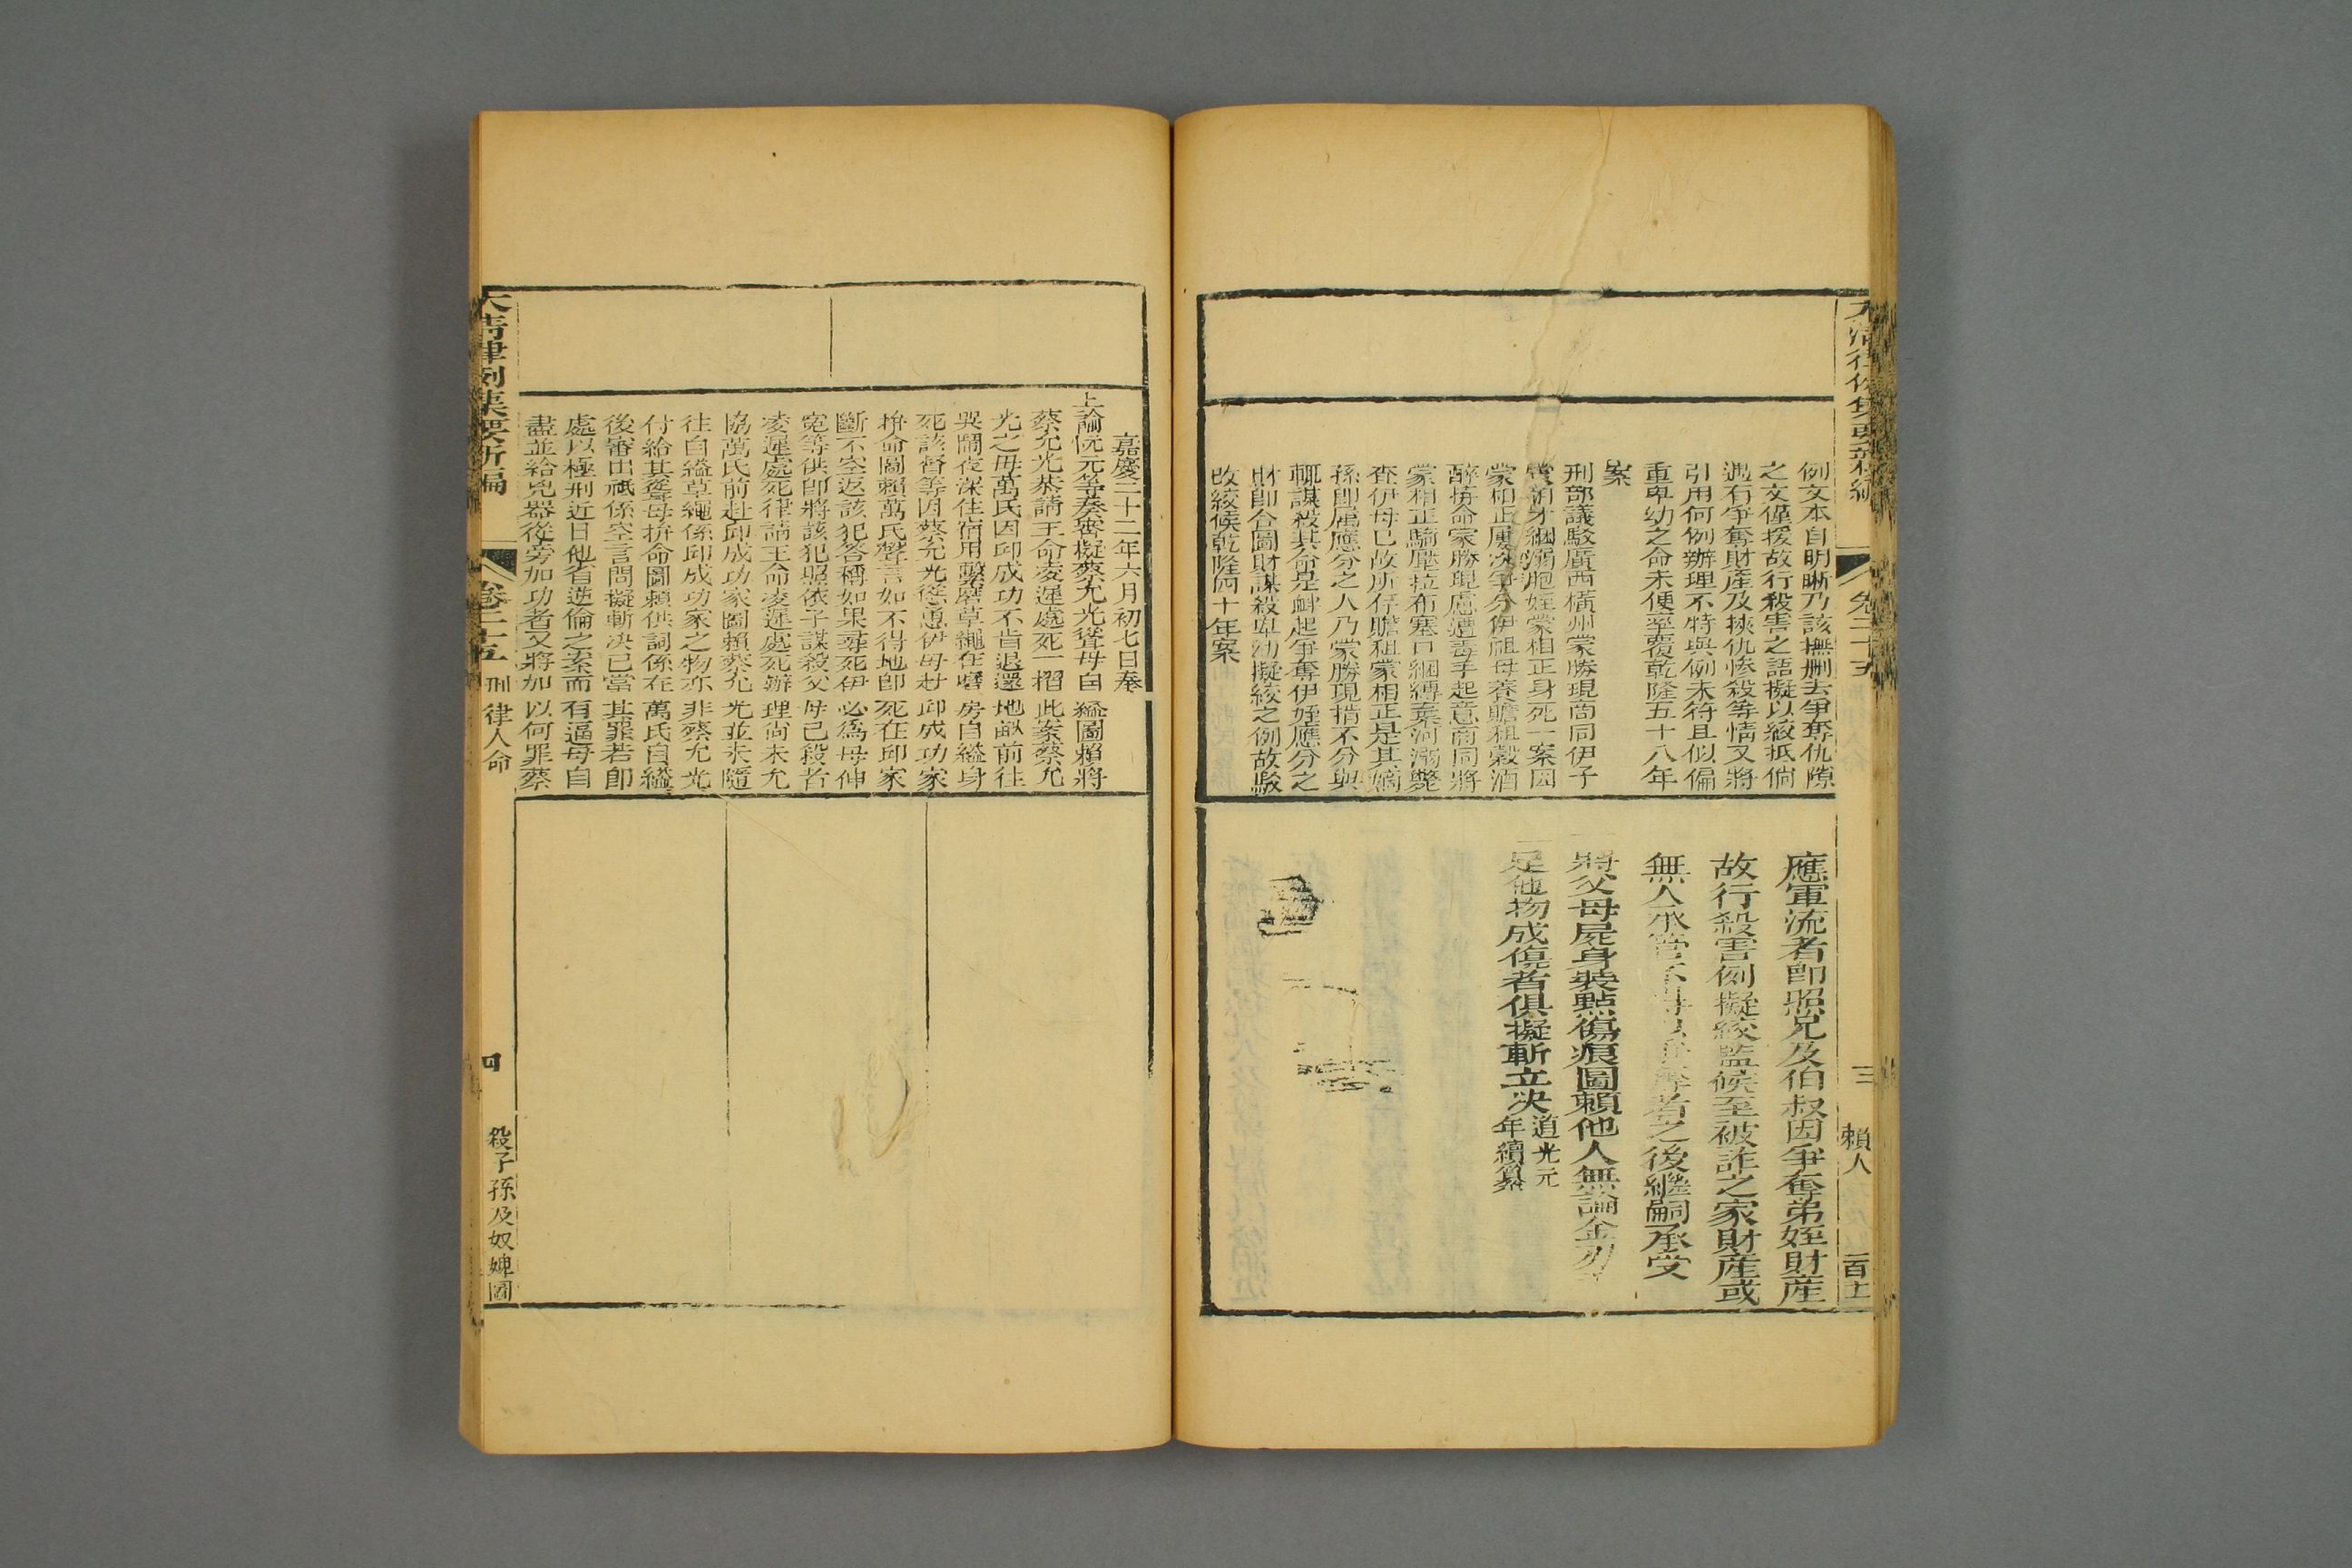 大清律例彙要新編
卷二十五
三
賴人
百十
例文本自明晰乃該撫删去爭奪仇隙
之文僅援故行殺害之語擬以絞抵倘
遇有爭奪財產及挾仇慘殺等情又將
引用何例辦理不特與例未符且似偏
重卑幼之命未便率覆乾隆五十八年
案
刑部議駁廣西橫州蒙勝現商同伊子
蒙胡才綑溺胞姪蒙相正身死一案因
蒙相正屢次爭分伊祖母養贍租穀酒
醉拚命蒙勝現慮遭毒手起意商同將
蒙相正騎壓拉布塞口綑縛棄河溺斃
查伊母已故所存贍租蒙相正是其嫡
孫即屬應分之人乃蒙勝現掯不分與
輒謀殺其命是衅起爭奪伊姪應分之
財即合圖財謀殺卑幼擬絞之例故駁
改絞候乾隆四十年案
應軍流者即照兄及伯叔因爭奪弟姪財產
故行殺害例擬絞監候至被詐之家財產或
無人承管不得以爭奪者之後繼嗣承受
一將父母屍身裝點傷痕圖賴他人無論金刃
是他物成傷者俱擬斬立決道光元
年續纂
嘉慶二十二年六月初七日奉
上諭阮元等奏審擬蔡允光聳母自縊圖賴將
蔡允光恭請王命凌遲處死一摺此案蔡允
光之母萬氏因邱成功不肯退還地畝前往
吳鬧夜深住宿用繫磨草繩在磨房自縊身
死該督等因蔡允光慫恿伊母赴邱成功家
拚命圖賴萬氏聲言如不得地即死在邱家
斷不空返該犯答稱如果尋死伊必為母伸
冤等供即將該犯照依子謀殺父母已殺者
凌遲處死律請王命凌遲處死辦理尚未允
協萬氏前赴邱成功家圖賴蔡允光並未隨
往自縊草繩係邱成功家之物亦非蔡允光
付給其聳母拚命圖賴供詞係在萬氏自縊
後審出祇係空言問擬斬决已當其罪若即
處以極刑近日他省逆倫之案而有逼母自
盡並給兇器從旁加功者又將加以何罪蔡
大清律例彙要新編
卷二十五
刑律人命
四
殺子孫及奴婢圖